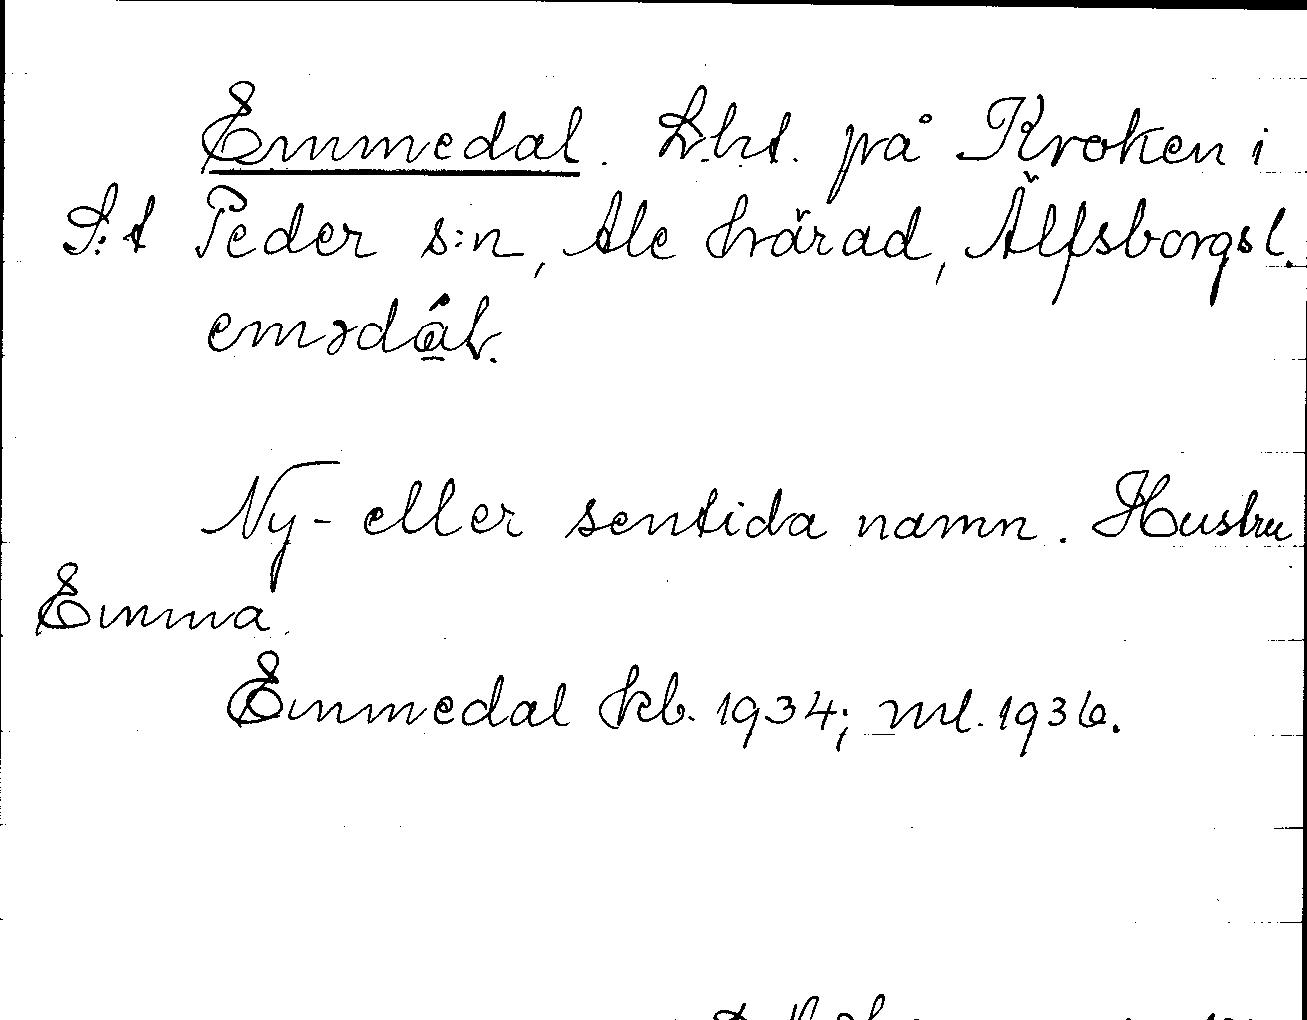 Emmedal. Lht. på Kroken i
S:t Peder s:n, Ale härad, Älfsborgs l.
emɘdàl.
Ny- eller sentida namn. Hustru
Emma.
Emmedal kb. 1934; ml. 1936.